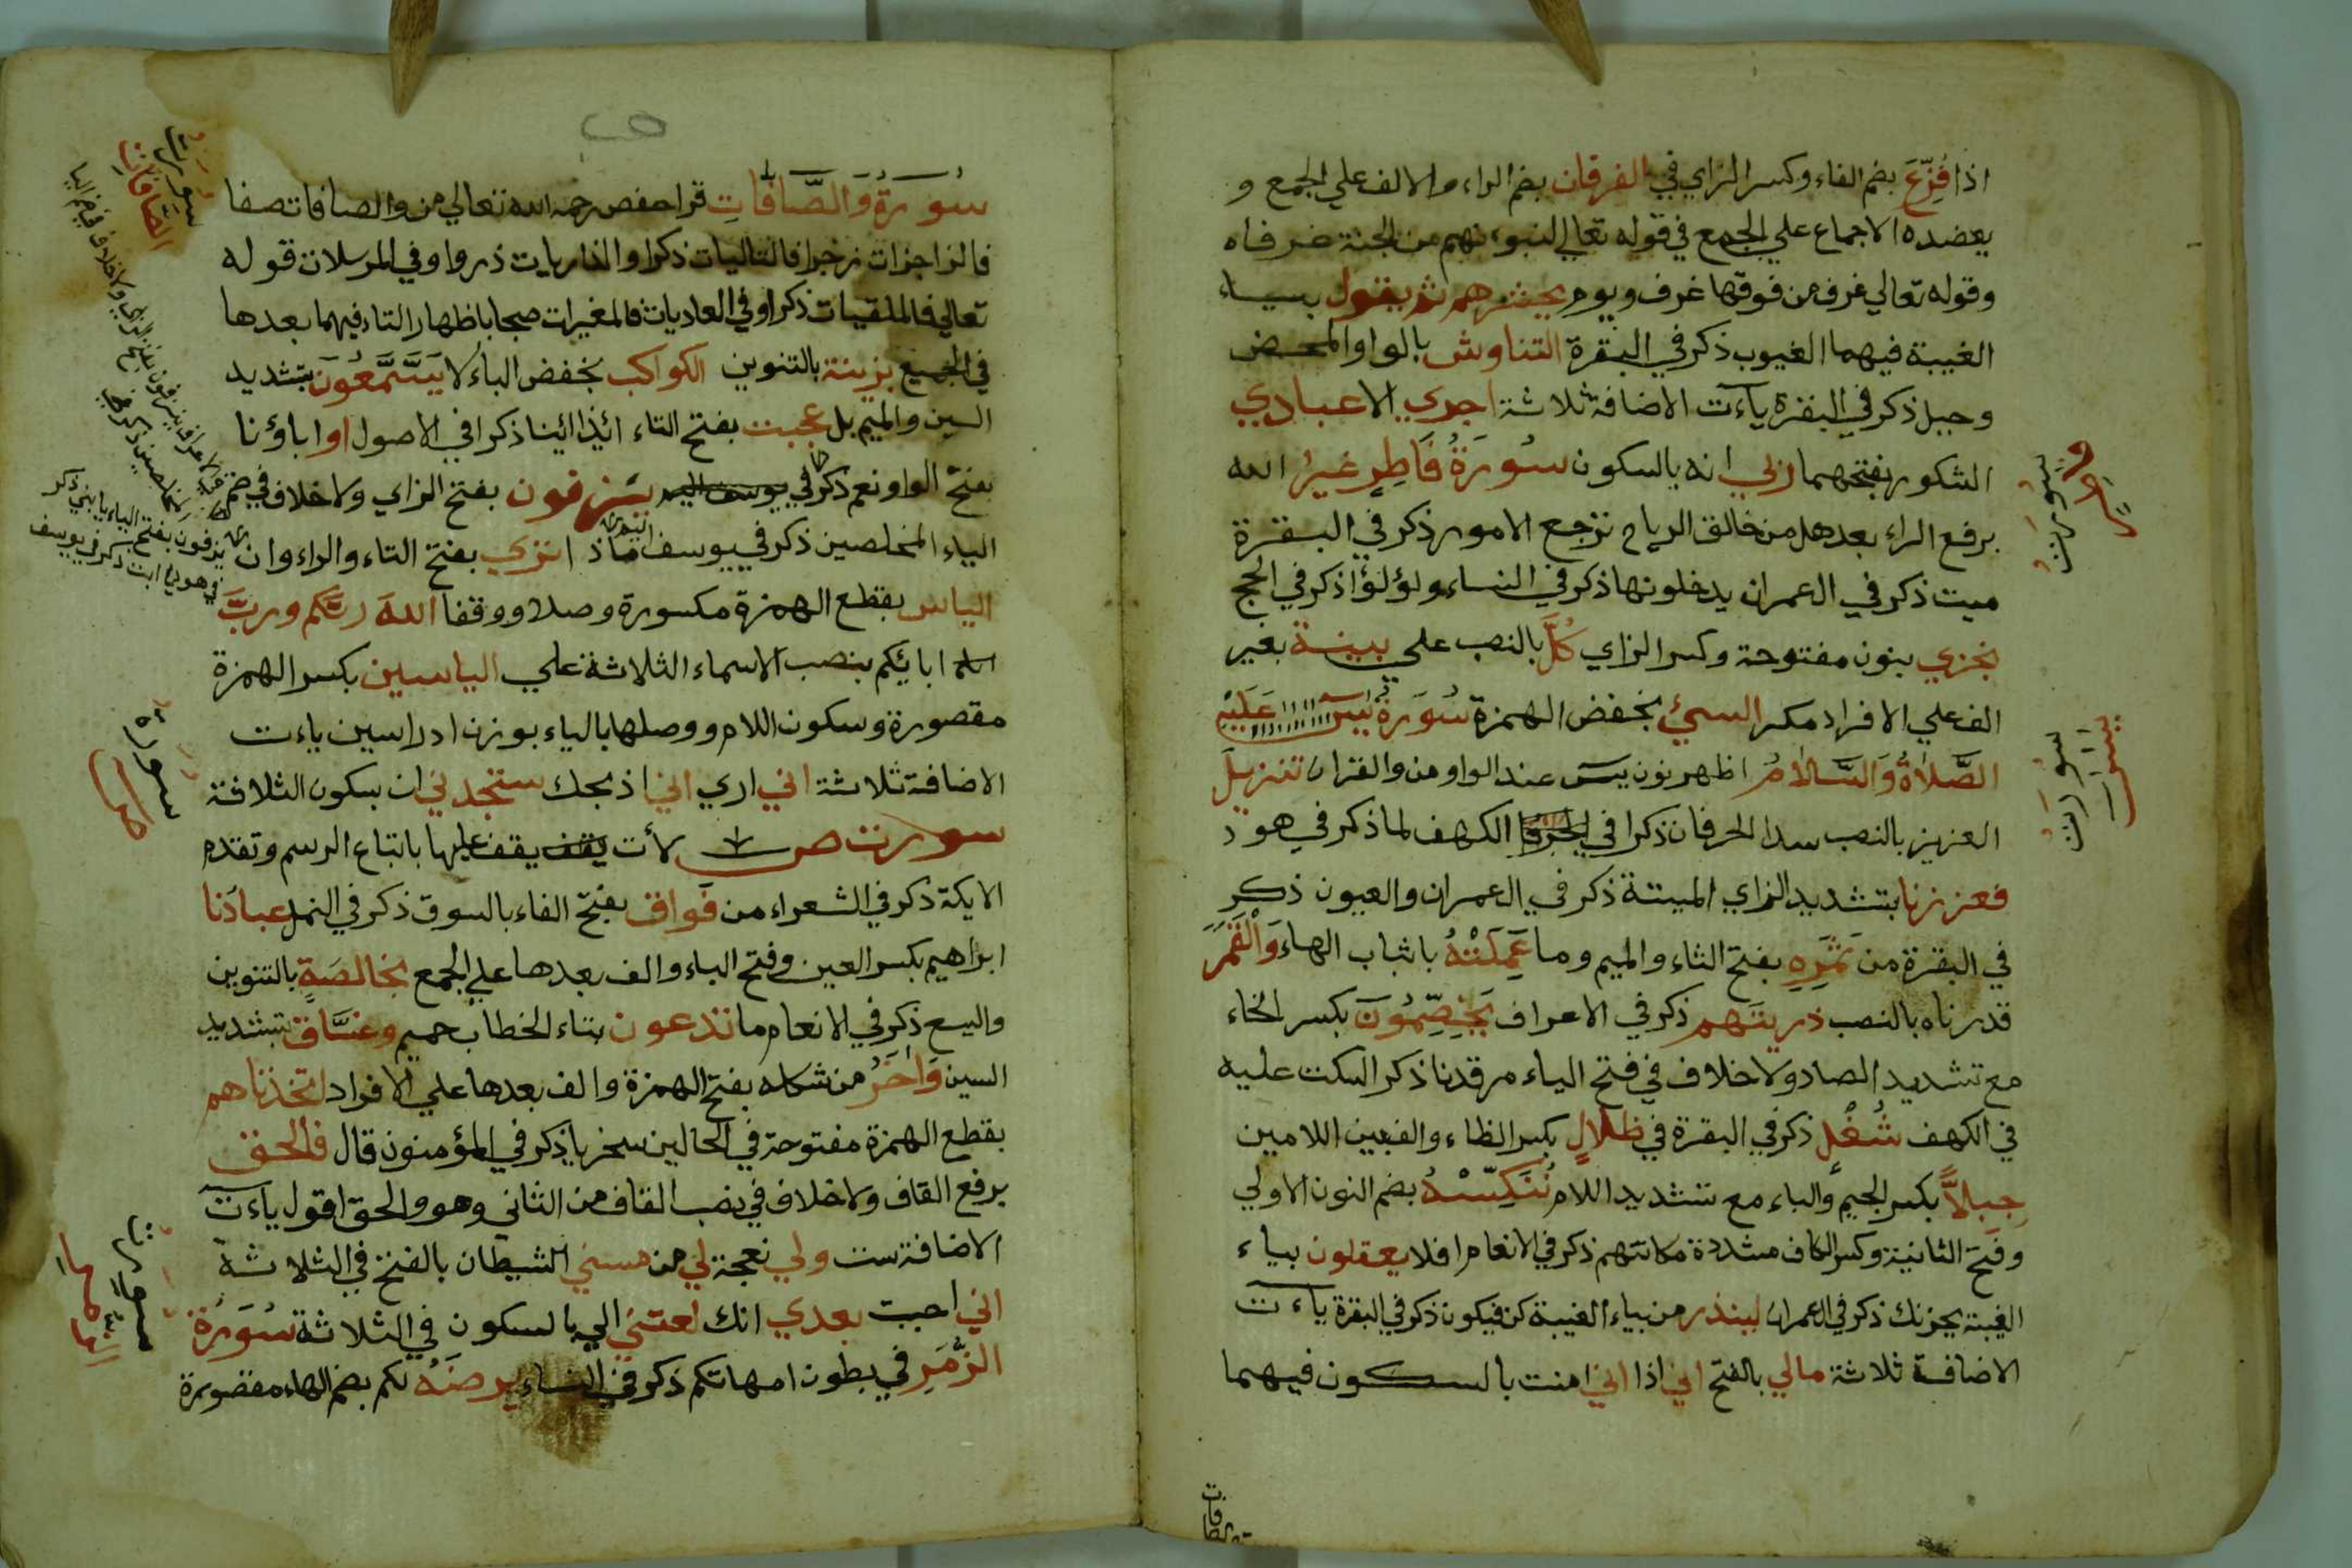 اذا فُزِّعَ بضم الفاء وكسر الزاي في الفرقان بضم الراء والالف علي الجمع و
يعضده الاجماع علي الجمع في قوله تعالي لنبوءنهم من الجنة غرفاه
وقوله تعالي غرف من فوقها غرف ويوم يحشرهم ثم يقول بياء
الغيبة فيهما الغيوب ذكر في البقرة التناوش بالواو المحض
وحيل ذكر في البقرة ياءت الاضافة ثلاثة اجري الا عبادي
الشكور بفتحهما ربي انه بالسكون سُورَةُ فَاطِرِ غيرُ الله
برفع الراء بعدهل من خالق الرياح ترجع الامور ذكر في البقرة
ميت ذكر في ال عمران يدخلونها ذكر في النساء ولؤلؤا ذكر في الحج
نجزي بنون مفتوحة وكسر الزاي كُلَّ بالنصب علي بينة بغير
الف علي الافراد مكر السيئ بخفض الهمزة سُورَةُ يسَ عَلَيْهِ
الصَّلاةُ وَالسَّلامُ اظهر نون يس عند الواو من والقران تنزيلَ
العزيز بالنصب سدا الحرفان ذكرا في الكهف لما ذكر في هود
فعززنا بتشديد الزاي الميتة ذكر في ال عمران والعيون ذكر
في البقرة من ثَمَرِهِ بفتح الثاء والميم وما عَمِلَتْهُ باثبات الهاء وَالْقَمَرَ
قدرناه بالنصب ذريتهم ذكر في الاعراف يَخِصِّمُونَ بكسر الخاء
مع تشديد الصاد ولا خلاف في فتح الياء مرقدنا ذكر السكت عليه
في الكهف شُغُل ذكر في البقرة في ظلالٍ بكسر الظاء والف بين اللامين
جِبِلاًّ بكسر الجيم والباء مع تشديد اللام نُنَكِّسْهُ بضم النون الاولي
وفتح الثانية وكسر الكاف مشددة مكانتهم ذكر في الانعام افلا يعقلون بياء
الغيبة يحزنك ذكر في ال عمران لينذر من بياء الغيبة كن فيكون ذكر في البقرة ياءت
الاضافة ثلاثة مالي بالفتح اني اذا اني امنت بالسكون فيهما
سورة
فاطر
سورة
يس
سُورَةُ وَالصَّافَّاتِ قرا حفص رحمه الله تعالي من والصافات صفا
فالزاجرات زجرا فالتاليات ذكرا والذاريات ذروا وفي المرسلات قوله
تعالي فالملقيات ذكرا وفي العاديات فالمغيرات صبحا باظهار التاء فيهما بعدها
في الجميع بزينة بالتنوين الكواكب بخفض الباء لا يَسَّمَّعُونَ بتشديد
السين والميم بل عجبت بفتح التاء ائذا ائنا ذكرا في الاصول او اباؤنا
بفتح الواو نعم ذكر في يزفون بفتح الزاي ولا خلاف في ضم
الياء المخلصين ذكر في يوسف ماذا تري بفتح التاء والراء وان
الياس بقطع الهمزة مكسورة وصلا ووقفا اللهَ ربَّكم وربَّ
ابائكم بنصب الاسماء الثلاثة علي الياسين بكسر الهمزة
مقصورة وسكون اللام ووصلها بالياء بوزن ادراسين ياءت
الاضافة ثلاثة اني اري اني اذبحك ستجدني ان بسكون الثلاثة
سورت ص لات يقف عليها باتباع الرسم وتقدم
الايكة ذكر في الشعراء من فَواق بفتح الفاء بالسوق ذكر في النمل عبادَنا
ابراهيم بكسر العين وفتح الباء والف بعدها علي الجمع بخالصَةٍ بالتنوين
واليسع ذكر في الانعام ما تدعون بتاء الخطاب حميم وغسَّاق بتشديد
السين وَاخَرُ من شكله بفتح الهمزة والف بعدها علي الافراد اتخذناهم
بقطع الهمزة مفتوحة في الحالين سخريا ذكر في المؤمنون قال فالحق
برفع القاف ولا خلاف في نصب القاف من الثاني وهو والحق اقول ياءت
الاضافة ست ولي نعجة لي من مسني الشيطان بالفتح في الثلاثة
اني احببت بعدي انك لعنتي الي بالسكون في الثلاثة سُورَةُ
الزُّمَرِ في بطون امهاتكم ذكر في النساء يرضَهُ لكم بضم الهاء مقصورة
سورت
الصافات
سورة
ص
سورت